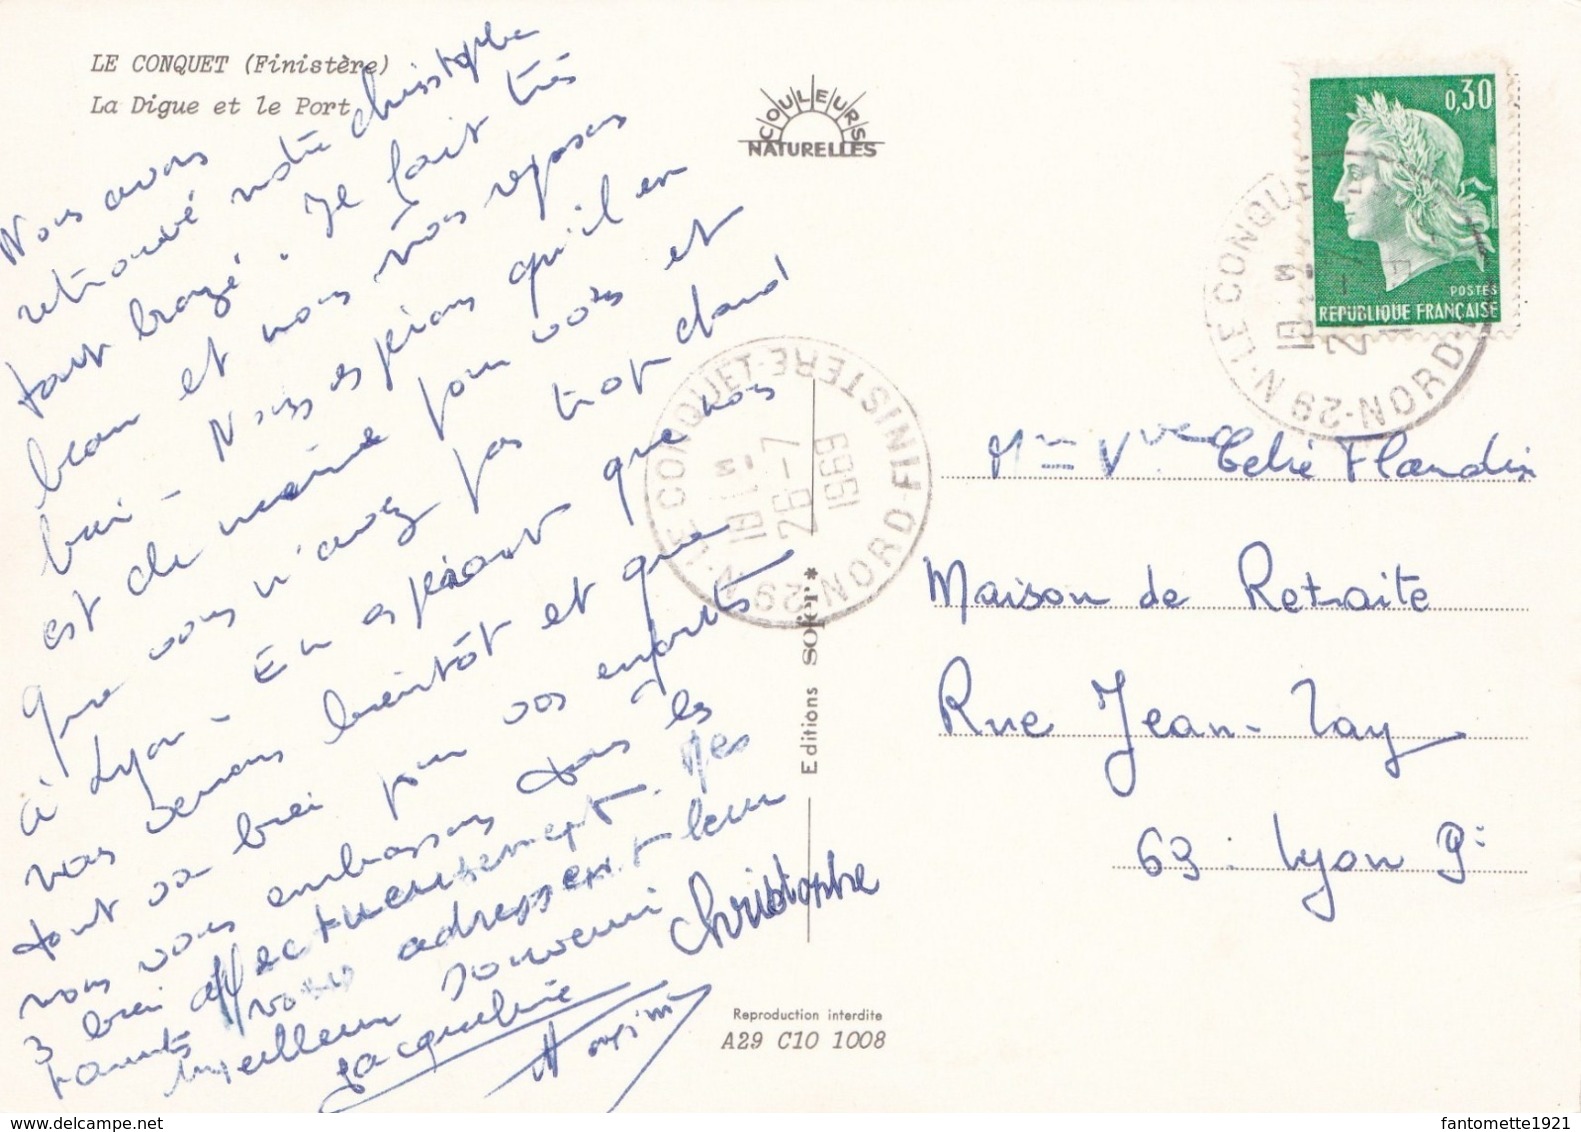 LE CONQUET (Finistère)
La Digue et le Port
COULEURS
NATURELLES
0,30
POSTES
REPUBLIQUE FRANÇAISE
Nous avons
retrouvé notre christophe
tout bronzé. Il fait très
beau et nous nous reposons
bien - Nous espérons qu'il en
est de même pour vous et
que vous n'avez pas trop chaud
à Lyon - En espérant que nous
nous verrons bientôt et que
tout va bien pour vos enfants
nous vous embrassons tous les
3 bien affectueusement. Mes
parents vous adressent leur
meilleur souvenir
christophe
Jacqueline
29 N. LE CONQUET NORD-FINISTERE
18H
26-7
1969
29 N. LE CONQUET NORD
18H
Mme Vve Celié Flandin
Maison de Retraite
Rue Jean-Zay
69. Lyon 9e
Editions sofer*
Reproduction interdite
A29 C10 1008
fantomette1921